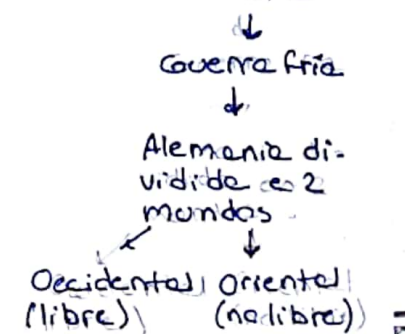 ↓
Guerra fría
↓
Alemania di-
vidida en 2
mundos
Occidental Oriental
(libre) (no libre)